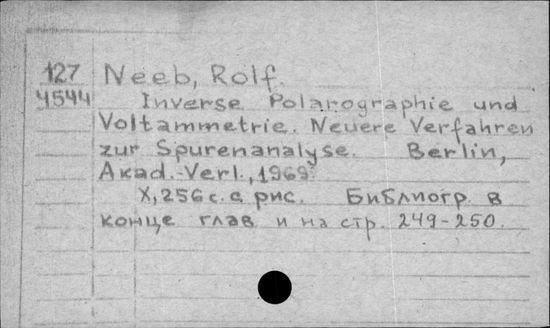 127 Neeb, Rolf.
4544 Inverse Polarographie und
Voltammetrie. Neuere Verfahren
zur Spurenanalyse. Berlin,
Akad.-Verl., 1969.
X, 256 с. с рис. Библиогр. в
конце глав и на стр. 249-250.